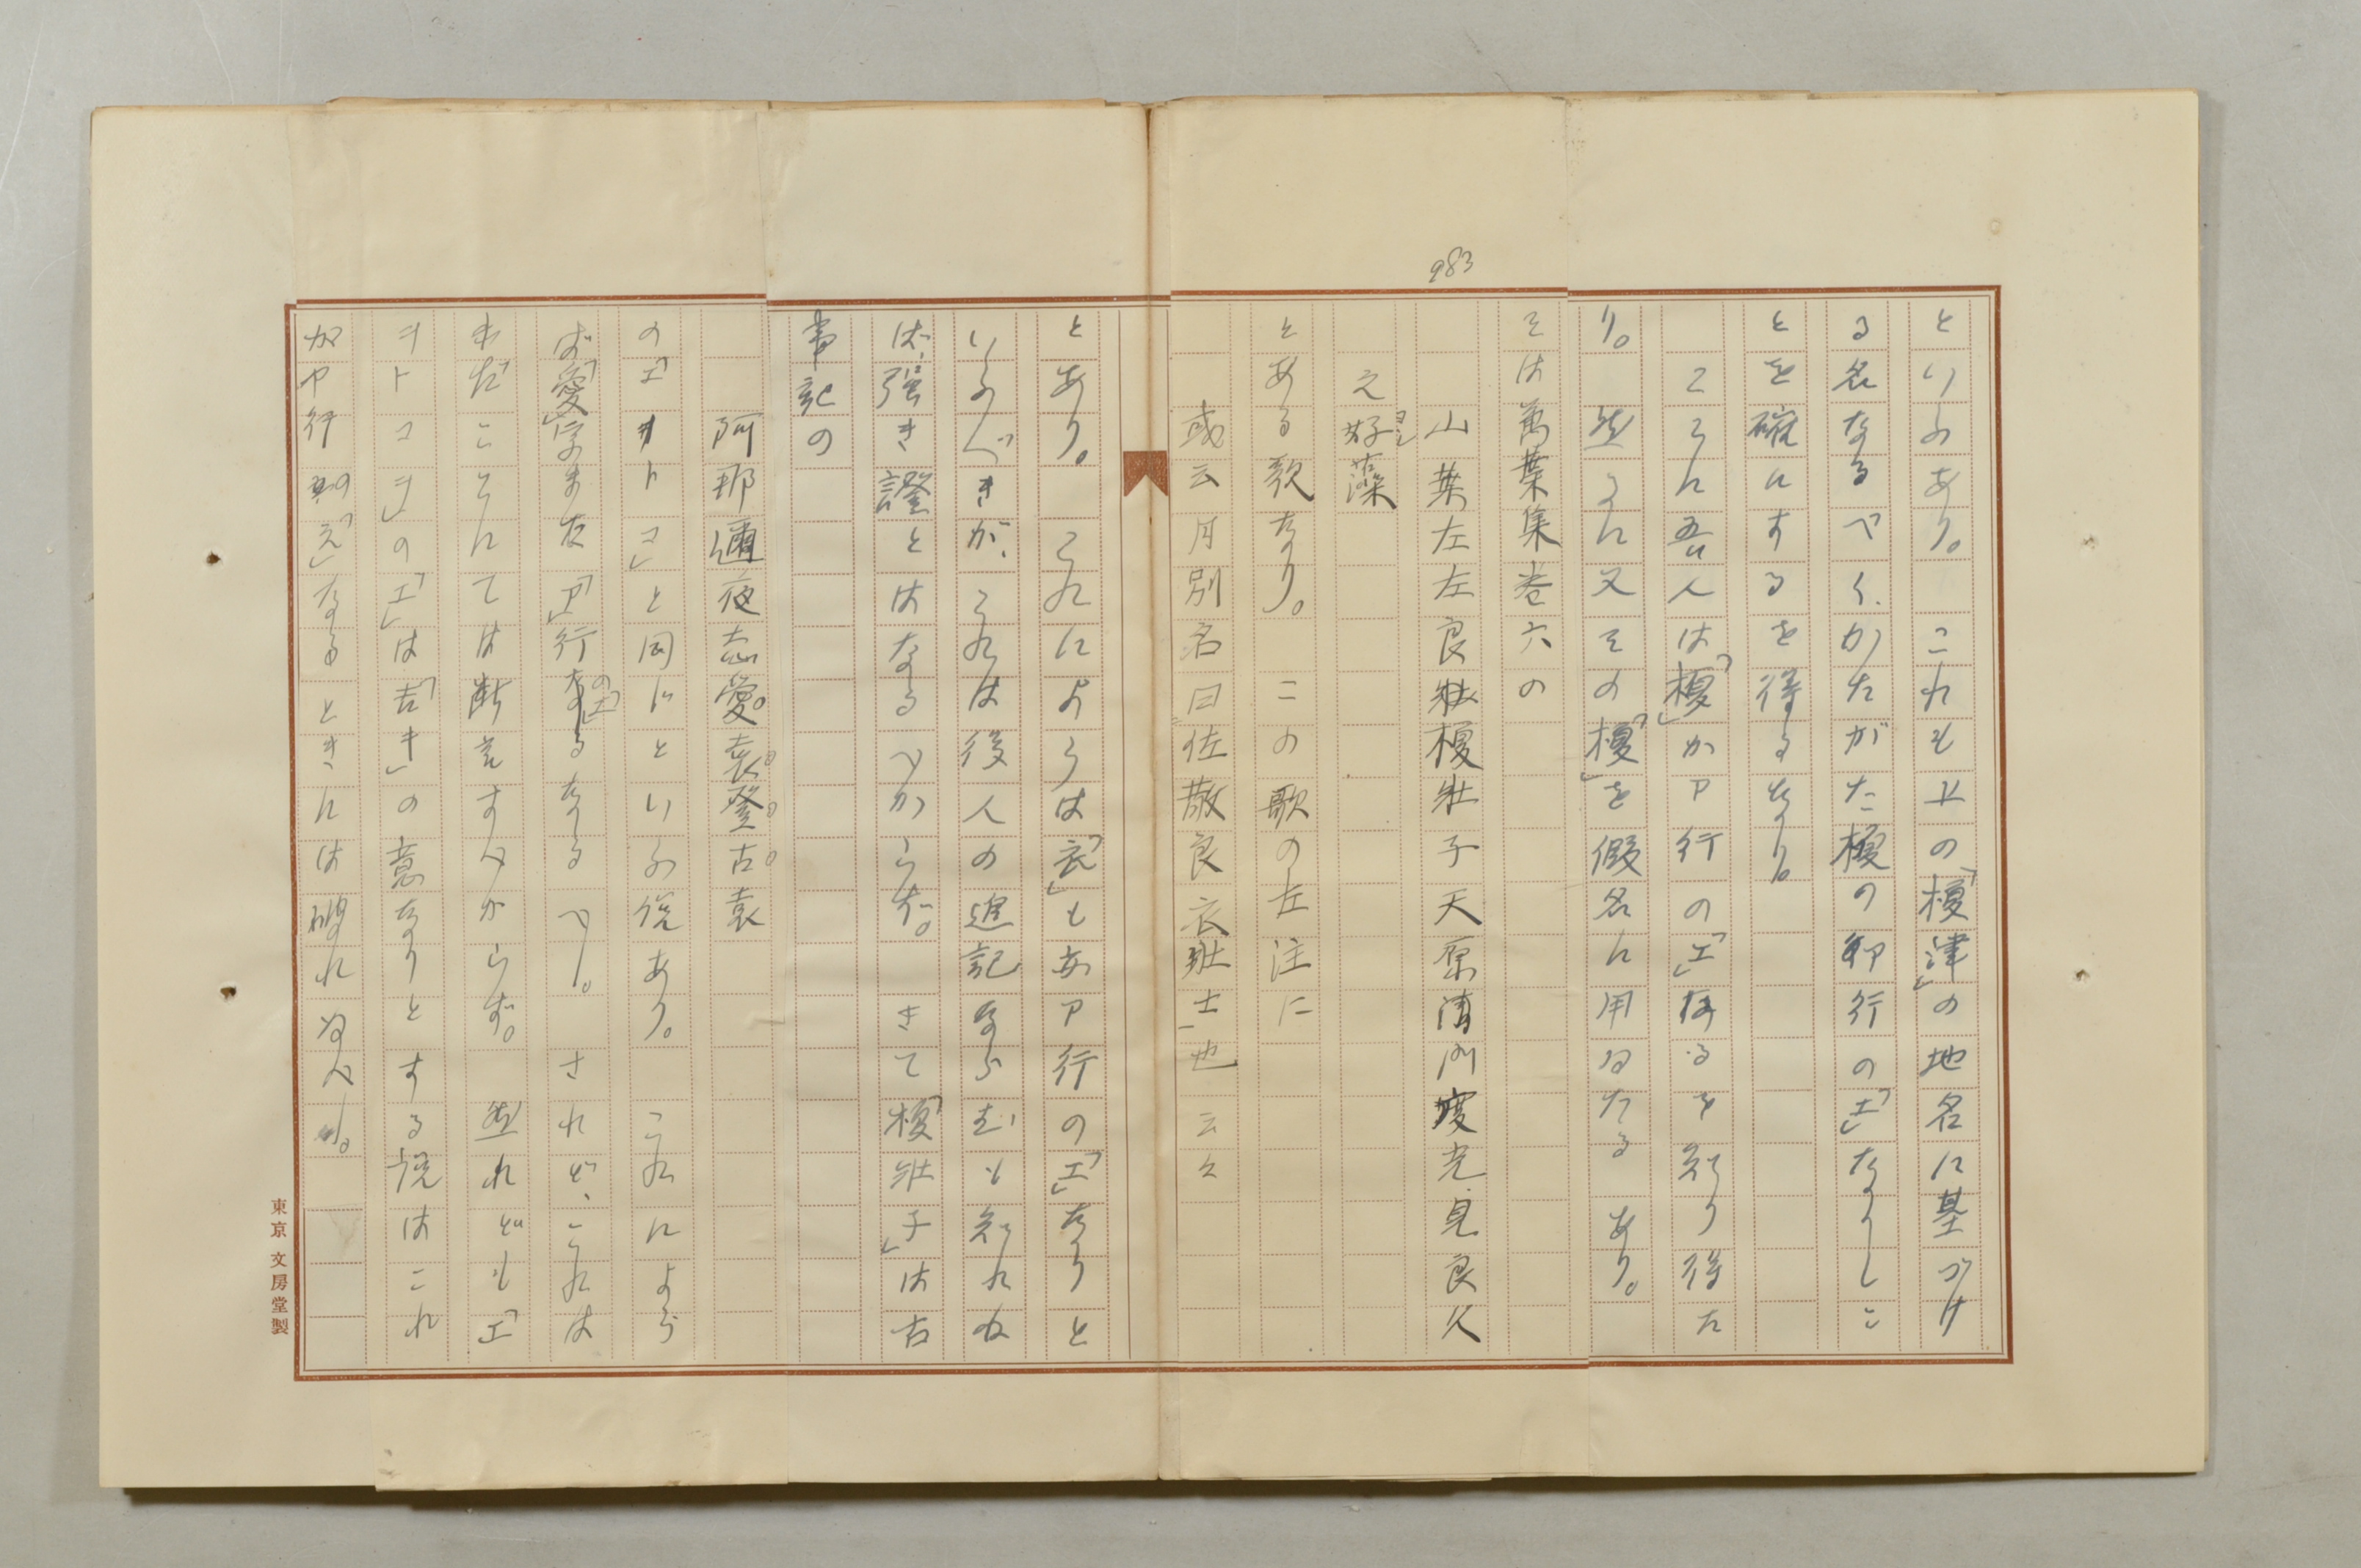 983
といふあり。これも上の「榎津」の地名に基づけ
る名なるべく、かたがた榎のア行の「エ」なりしこ
とを確にするを得るなり。
ここに吾人は「榎」がア行の「エ」なるを知り得た
り。然るに又その「榎」を假名に用ゐたるあり。
そは萬葉集巻六の
山葉左左良榎壮子天原門度光見良久
之好藻
とある歌なり。この歌の左注に
或云月別名曰佐散良衣壮士也云々
とあり。これによらは「衣」もア行の「エ」なりと
いふべきが、これは後人の追記ならむも知れぬ
ば、強き證とはなるべからず。さて「榎壮子」は古
事記の
阿那邇夜志愛袁登古袁
の「エヲトコ」と同じといふ説あり。これによら
ば「愛」字また「ア」行の「エ」なるべし。されど、これは
まだこゝにては断言すべからず。然れども「エ
ヲトコヲ」の「エ」は「吉き」の意なりとする説はこれ
がや行の「え」なるときには破れぬべし。
東京 文房堂製